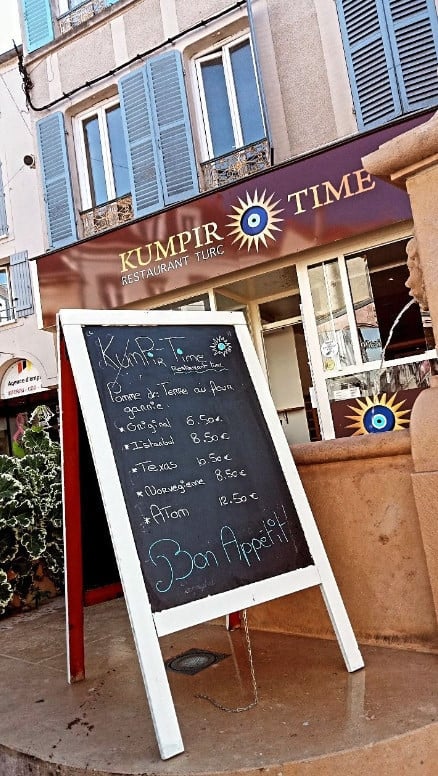 KUMPIR TIME
RESTAURANT TURC
KumPir Time
Restaurant turc
Pomme de Terre au four
garnie.
* Original 6.50€
* Istanbul 8.50€
* Texas 10.50€
* Norvegienne 8.50€
* ATom 12.50€
Bon Appétit!
Agence d'empl